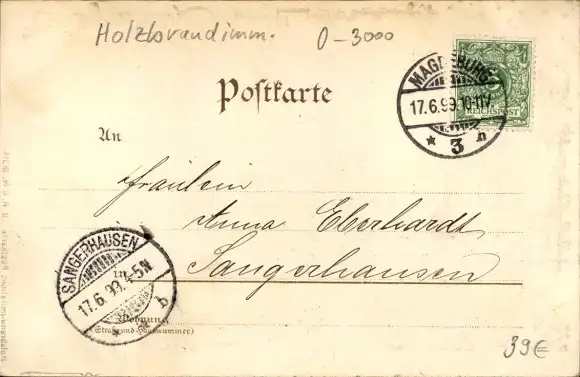 Holzbrandimm. 0-3000
Postkarte
MAGDEBURG
17.6.99.10-11V.
* 3 n
REICHSPOST
An
Fräulein
Anna Eberhardt
Sangerhausen
in
SANGERHAUSEN
17.6.99.4-5N
* * b
Wohnung
(Straße und Hausnummer)
39€